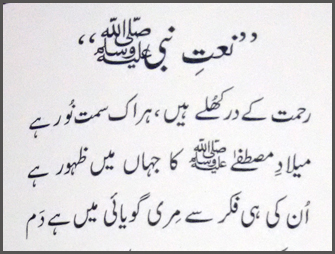 ”نعتِ نبی ﷺ“
رحمت کے در کھلے ہیں، ہر اک سمت نُور ہے
میلادِ مصطفیٰ ﷺ کا جہاں میں ظہور ہے
اُن کی ہی فکر سے مِری گویائی میں ہے دَم